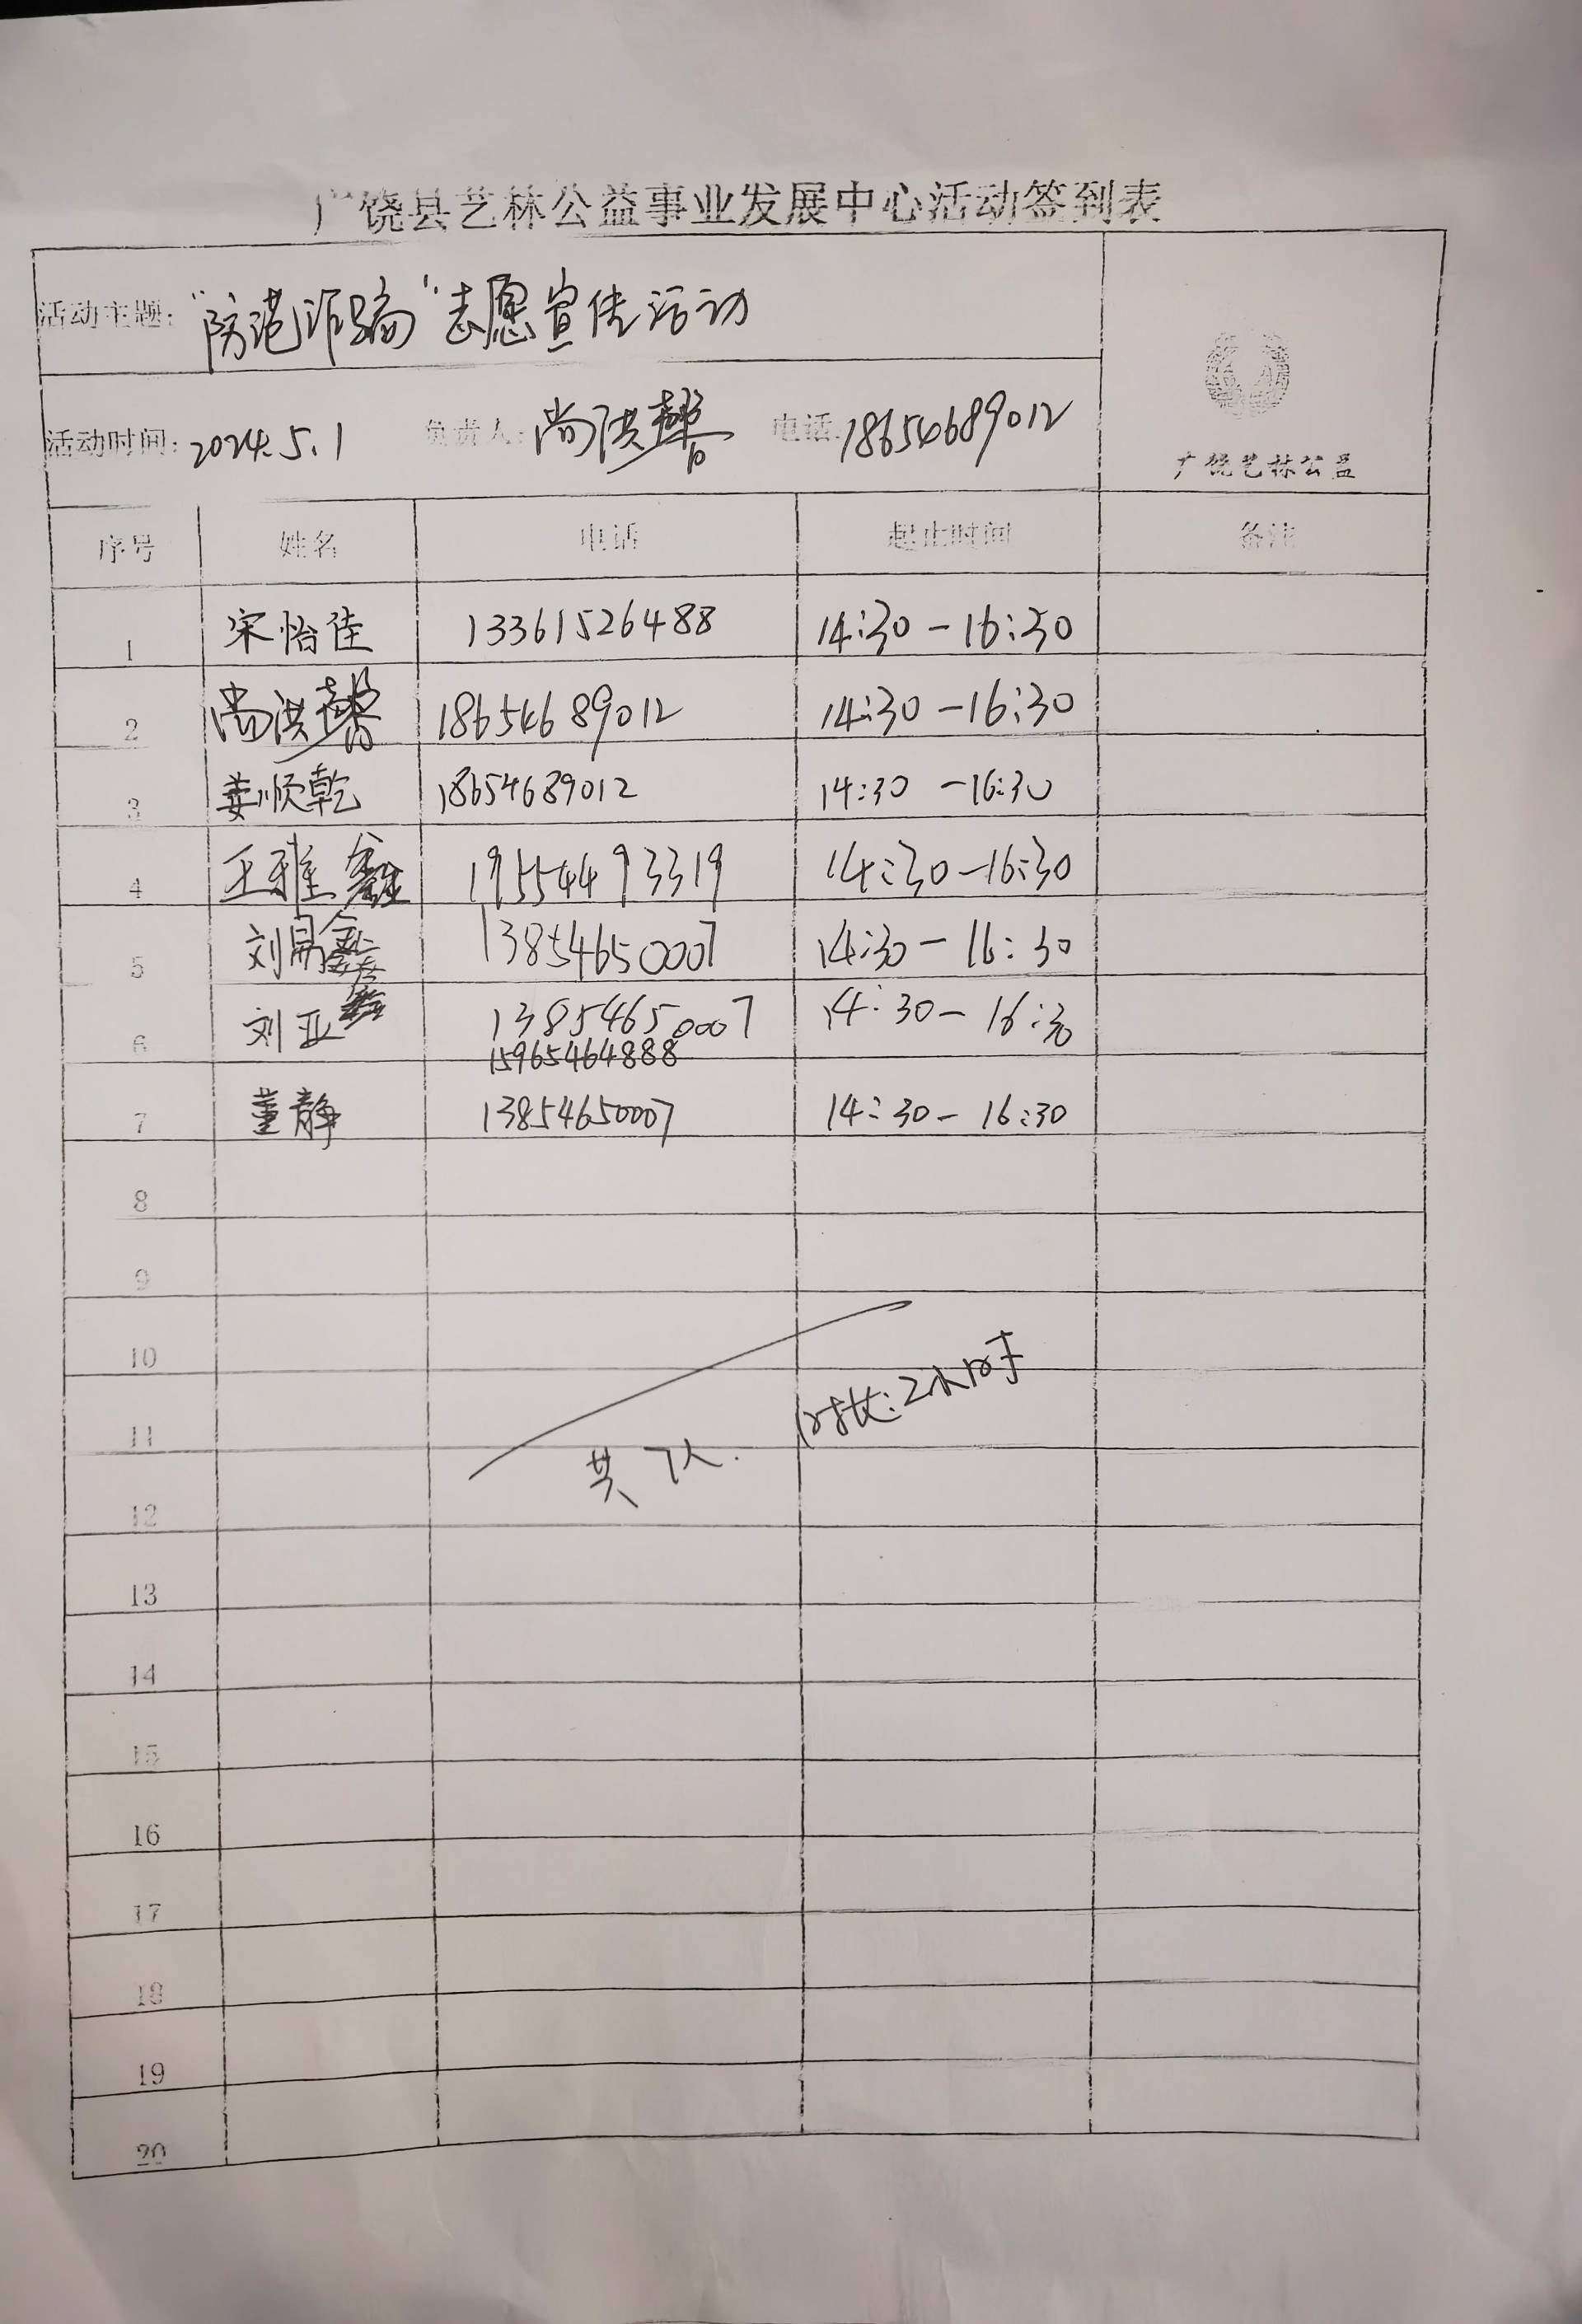 广饶县艺林公益事业发展中心活动签到表
活动主题:“防范诈骗”志愿宣传活动
活动时间:2024.5.1 负责人:尚洪馨 电话:18654689012
广饶艺林公益
序号 姓名 电话 起止时间 备注
1 宋怡佳 13361526488 14:30-16:30
2 尚洪馨 18654689012 14:30-16:30
3 姜顺乾 18654689012 14:30-16:30
4 王雅鑫 19554493319 14:30-16:30
5 刘易鑫 13854650007 14:30-16:30
6 刘亚 13854650007 14:30-16:30
15965464888
7 董静 13854650007 14:30-16:30
8
9
10
11
时长:2小时
共7人.
12
13
14
15
16
17
18
19
20